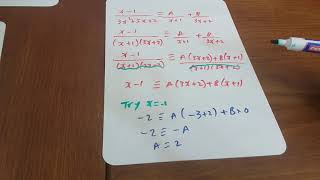 x-1 / 3x²+5x+2 ≡ A / x+1 + B / 3x+2
x-1 / (x+1)(3x+2) ≡ A / x+1 + B / 3x+2
x-1 / (x+1)(3x+2) ≡ A(3x+2)+B(x+1) / (x+1)(3x+2)
x-1 ≡ A(3x+2)+B(x+1)
Try x=-1
-2 ≡ A(-3+2)+B×0
-2 ≡ -A
A = 2